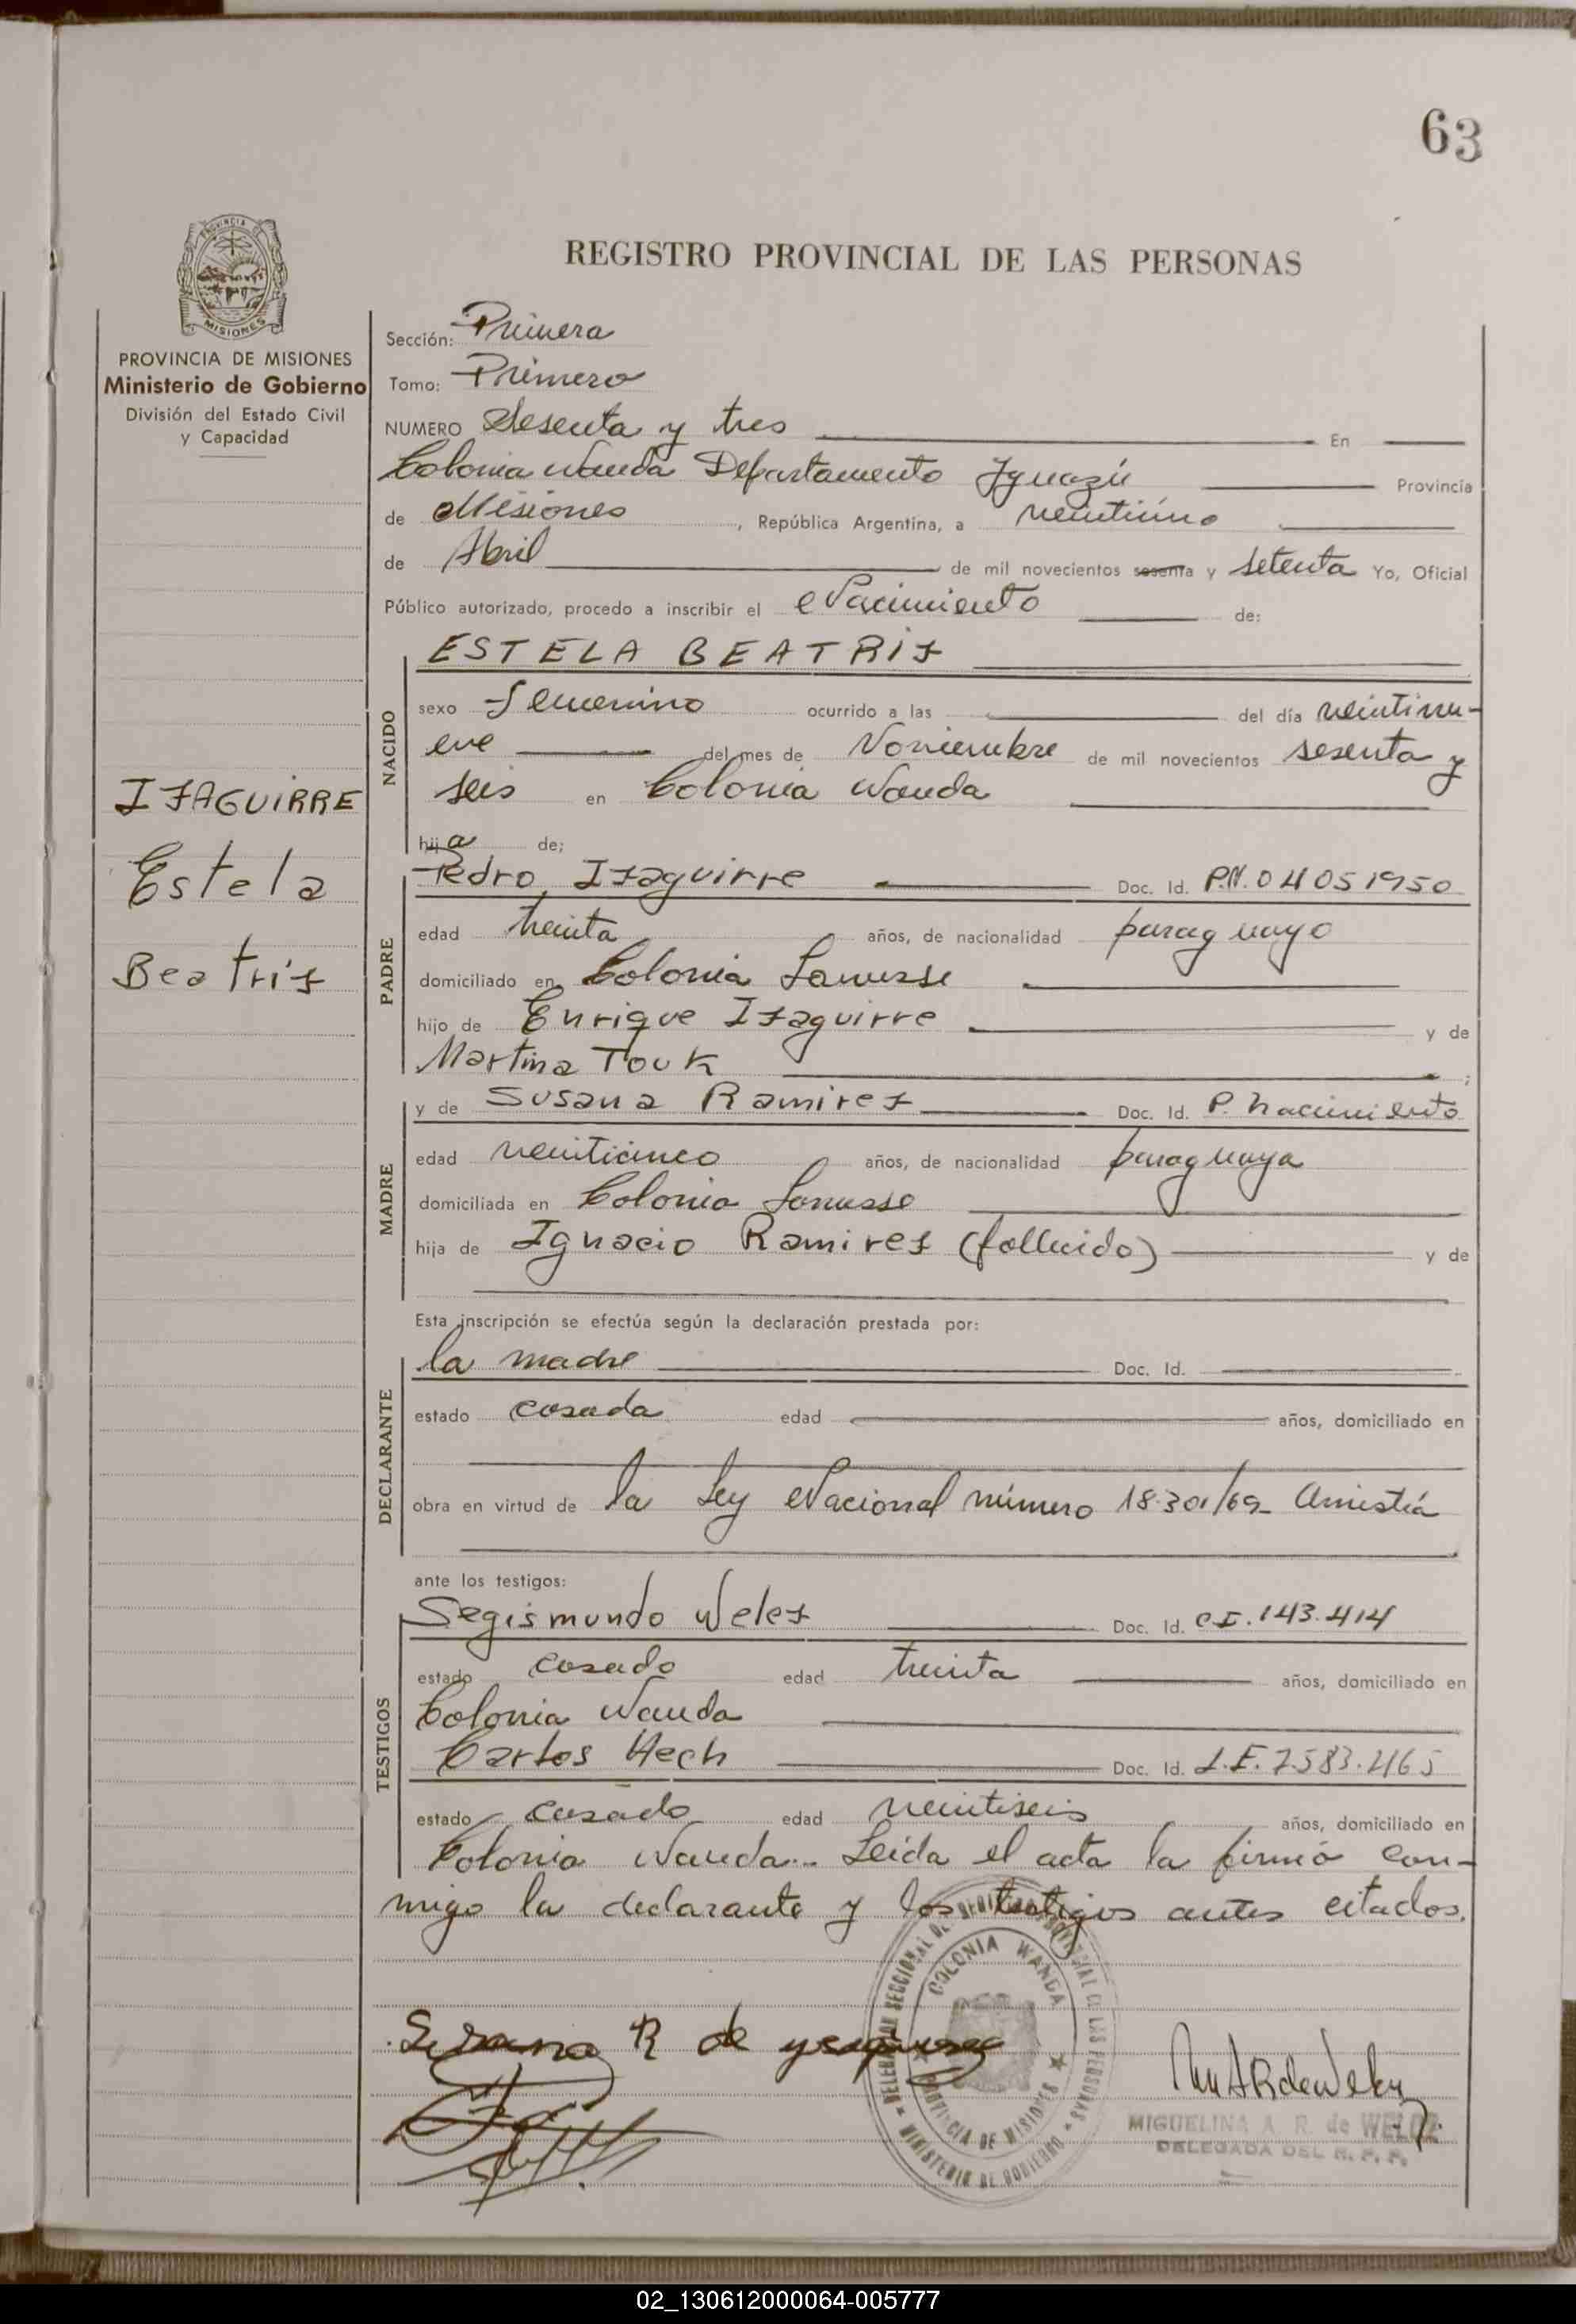 63
PROVINCIA DE
MISIONES
PROVINCIA DE MISIONES
Ministerio de Gobierno
División del Estado Civil
y Capacidad
IZAGUIRRE
Estela
Beatriz
REGISTRO PROVINCIAL DE LAS PERSONAS
Sección: Primera
Tomo: Primero
NUMERO Sesenta y tres En
Colonia Wanda Departamento Iguazú Provincia
de Misiones, República Argentina, a veintiúno
de Abril de mil novecientos sesenta y setenta Yo, Oficial
Público autorizado, procedo a inscribir el Nacimiento de:
NACIDO
ESTELA BEATRIZ
sexo Femenino ocurrido a las del día veintinu-
eve del mes de Noviembre de mil novecientos sesenta y
seis en Colonia Wanda
hija de;
PADRE
Pedro Izaguirre Doc. Id. P.N. 04051950
edad treinta años, de nacionalidad paraguayo
domiciliado en Colonia Lanusse
hijo de Enrique Izaguirre y de
Martina Touk ;
MADRE
y de Susana Ramirez Doc. Id. P. nacimiento
edad veinticinco años, de nacionalidad paraguaya
domiciliada en Colonia Lanusse
hija de Ignacio Ramirez (fallecido) y de
Esta inscripción se efectúa según la declaración prestada por:
DECLARANTE
la madre Doc. Id.
estado casada edad años, domiciliado en
obra en virtud de la Ley Nacional número 18.301/69- Amistía
ante los testigos:
TESTIGOS
Segismundo Welez Doc. Id. C.I. 143.414
estado casado edad treinta años, domiciliado en
Colonia Wanda
Carlos Hech Doc. Id. L.E. 7.583.465
estado casado edad veintiseis años, domiciliado en
Colonia Wanda.- Leída el acta la firmó con-
migo la declarante y los testigos antes citados.
DELEGACION SECCIONAL DEL REGISTRO PROVINCIAL DE LAS PERSONAS
COLONIA WANDA
PROVINCIA DE MISIONES
MINISTERIO DE GOBIERNO
Susana R de ysaguirre
MIGUELINA A. R. de WELEZ
DELEGADA DEL R. P. P.
02_130612000064-005777